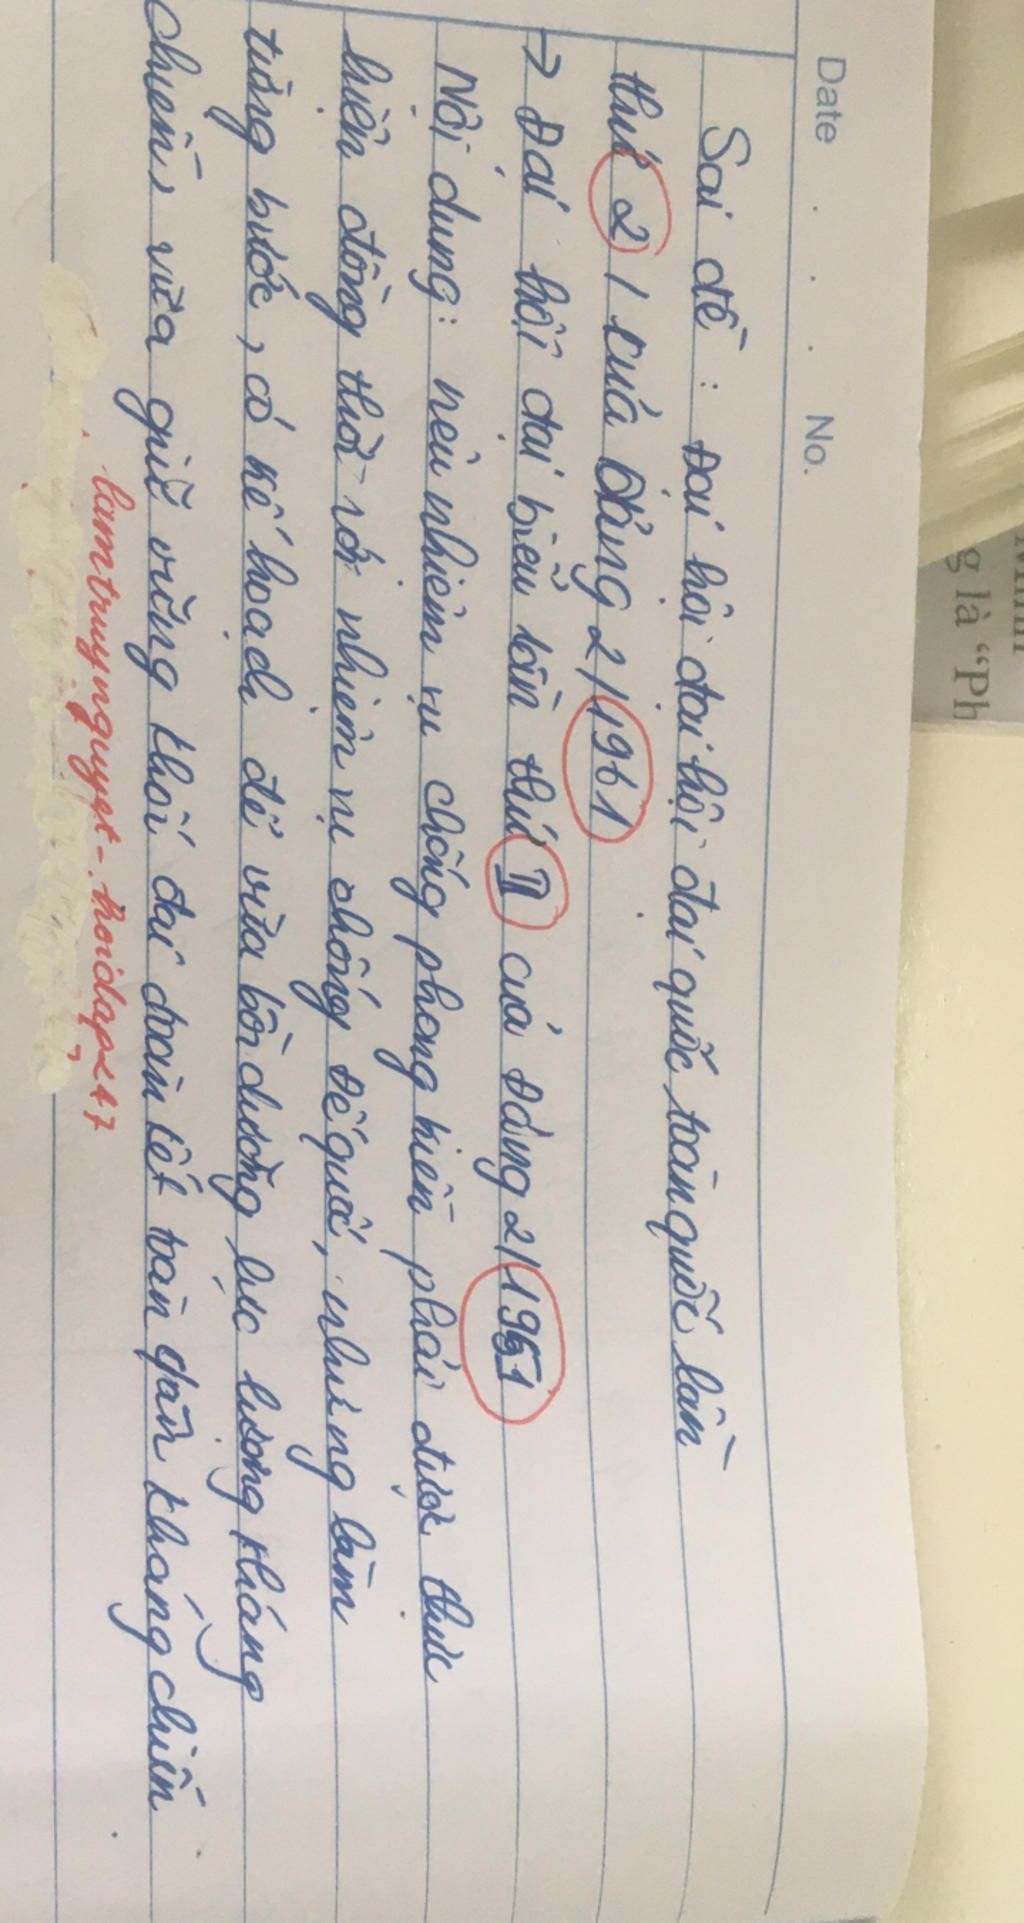 Date . . . . No.
Sai đề : Đại hội đại hội đại quốc toàn quốc lần
thứ 2 / của Đảng 2/1961
→ Đại hội đại biểu lần thứ II của Đảng 2/1951
Nội dung: nêu nhiệm vụ chống phong kiến phải được thực
hiện đồng thời với nhiệm vụ chống Đế quốc, nhưng làm
từng bước, có kế hoạch để vừa bồi dưỡng lực lượng kháng
chiến, vừa giữ vững khối đại đoàn kết toàn dân kháng chiến
lamtruynguyet - hoidap247
g là “Ph